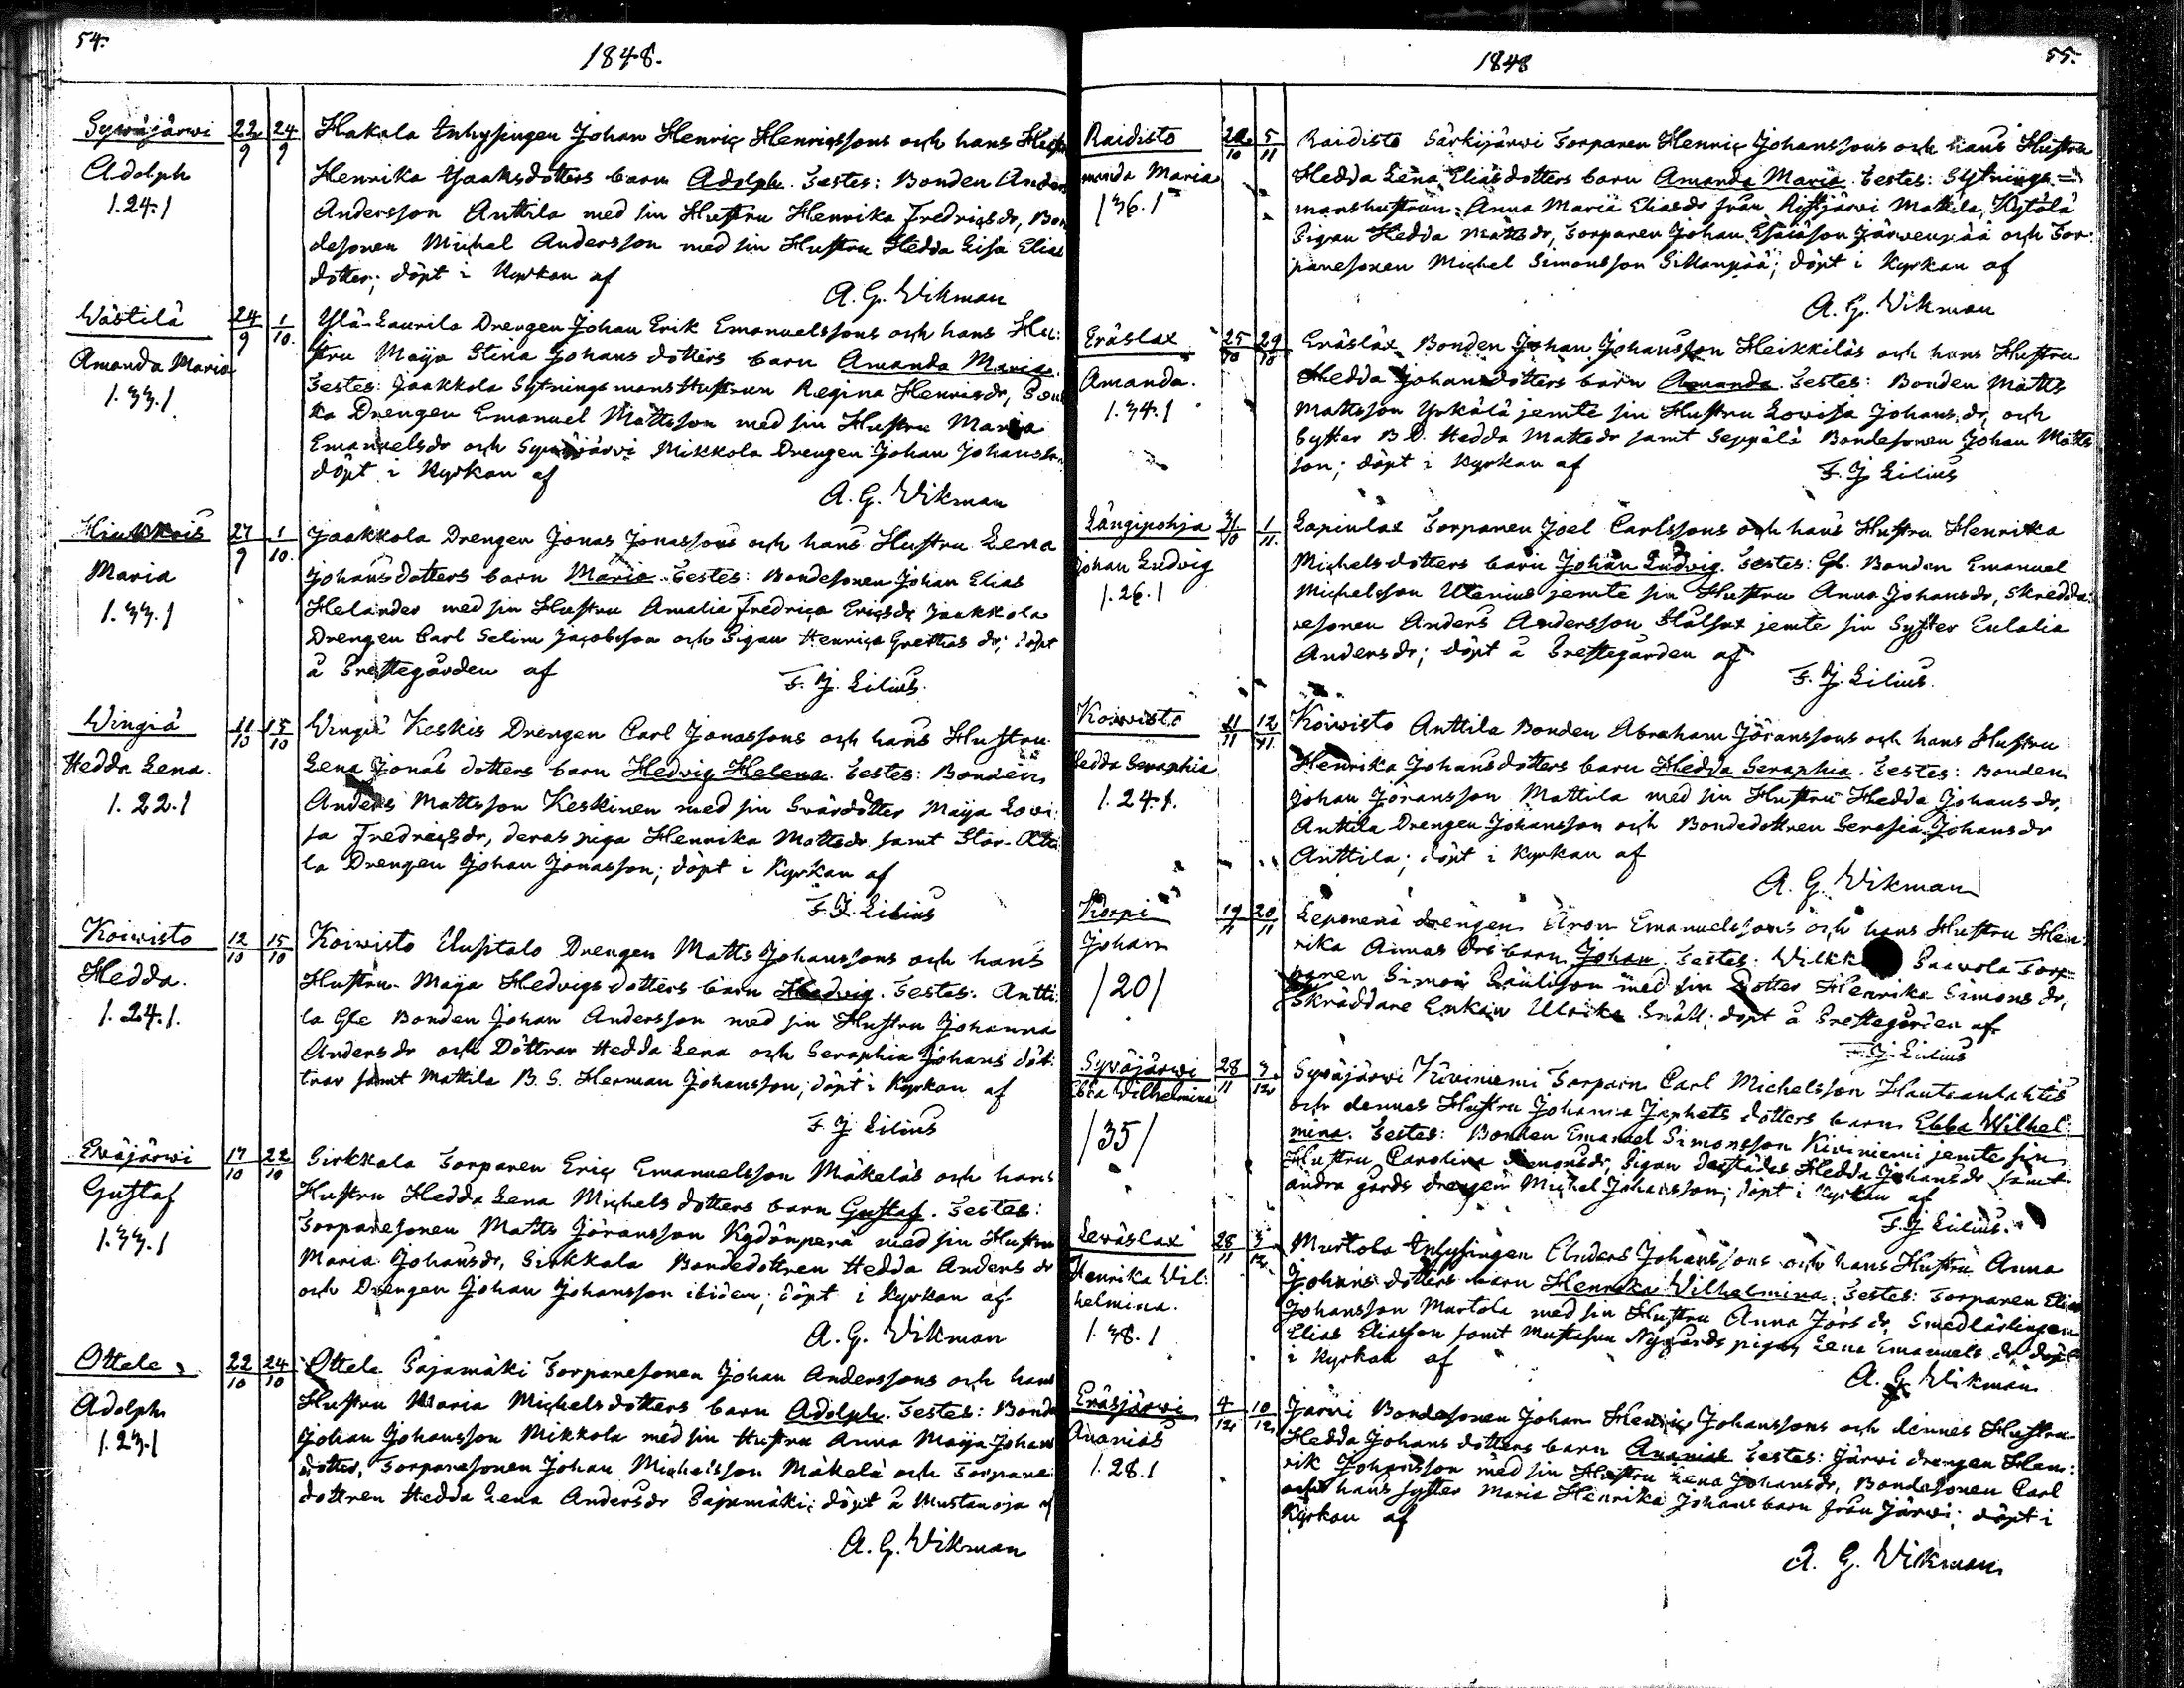 54.
1848.
Sywäjärwi 22/9 24/9 Hakala Inhysingen Johan Henric Henricssons och hans Hustru
Adolph Henrika Jaaksdotters barn Adolph. Testes: Bonden Anders
1.24.1 Andersson Anttila med sin Hustru Henrika Fredricsdr, Bon
desonen Michel Andersson med sin Hustru Hedda Lisa Elias
dotter; döpt i Kyrkan af
A. G. Wikman
Wästilä 24/9 1/10 Ylä-Laurila Drengen Johan Erik Emanuelssons och hans Hu:
Amanda Maria stru Maija Stina Johans dotters barn Amanda Maria.
1.33.1 Testes: Jaakkola Sytningsmans Hustrun Regina Henricsdr,
ka Drengen Emanuel Mattsson med sin Hustru Maria
Emanuelsdr och Sywäjärvi Mikkola Drengen Johan Johansson
döpt i Kyrkan af
A. G. Wikman
27/9 1/10 Jaakkola Drengen Jonas Jonassons och hans Hustru Lena
Maria Johansdotters barn Maria. Testes: Bondesonen Johan Elias
1.33.1 Helander med sin Hustru Amalia Fredrica Ericsdr Jaakkola
Drengen Carl Selim Jacobsson och Pigan Henrica Grethas dr; döpt
å Prestegården af
F. J. Lilius.
Wingiä 11/10 15/10 Wingiä Keskis Drengen Carl Jonassons och hans Hustru
Hedda Lena. Lena Jonas dotters barn Hedvig Helena. Testes: Bonden
1.22.1 Anders Mattsson Keskinen med sin Svärdotter Maija Lovi:
sa Fredricsdr, deras piga Henrika Mattsdr samt Stor-Atta
la Drengen Johan Jonasson; döpt i Kyrkan af
F. J. Lilius
Koiwisto 12/10 15/10 Koiwisto Uusitalo Drengen Matts Johanssons och hans
Hedda. Hustru Maija Hedvigs dotters barn Hedvig. Testes: Antti:
1.24.1. la Gle Bonden Johan Andersson med sin Hustru Johanna
Anders dr och Döttrar Hedda Lena och Seraphia Johans döt:
trar samt Mattila B. S. Herman Johansson; döpt i Kyrkan af
F. J. Lilius
Eräjärwi 17/10 22/10 Sirkkala Torparen Eric Emanuelsson Mäkeläs och hans
Gustaf Hustru Hedda Lena Michels dotters barn Gustaf. Testes:
1.33.1 Torparesonen Matts Jöransson Kydönperä med sin Hustru
Maria Johansdr, Sirkkala Bondedottren Hedda Anders dr
och Drengen Johan Johansson ibidem; döpt i Kyrkan af
A. G. Wikman
Ottele 22/10 24/10 Ottele Pajamäki Torparesonen Johan Anderssons och hans
Adolph Hustru Maria Michelsdotters barn Adolph. Testes: Bonden
1.23.1 Johan Johansson Mikkola med sin Hustru Anna Maija Johans
dotter, Torparesonen Johan Michelsson Mäkelä och Torpare
dottren Hedda Lena Andersdr Pajamäki; döpt å Mustanoja af
A. G. Wikman
1848
55.
Raidisto 22/10 5/11 Raidisto Särkijärwi Torparen Henric Johanssons och hans Hustru
manda Maria Hedda Lena Eliasdotters barn Amanda Maria. Testes: Sytnings=
136.1 manshustrun Anna Maria Eliasdr från Ristjärvi Mattila, Kytölä
Pigan Hedda Mattsdr, Torparen Johan Esaiasson Järwenpää och Tor:
paresonen Michel Simonsson Sillanpää; döpt i Kyrkan af
A. G. Wikman
Eräslax 25/10 29/10 Eräslax Bonden Johan Johansson Heikkiläs och hans Hustru
Amanda. Hedda Johansdotters barn Amanda. Testes: Bonden Matts
1.34.1 Mattsson Yrkälä jemte sin Hustru Lowisa Johans dr, och
Syster B. D. Hedda Mattsdr samt Seppälä Bondesonen Johan Matts
son; döpt i Kyrkan af
F. J. Lilius
Längipohja 31/10 1/11. Lapinlax Torparen Joel Carlssons och hans Hustru Henrika
Johan Ludvig Michelsdotters barn Johan Ludvig. Testes: Gl. Bonden Emanuel
1.26.1 Michelsson Utenius jemte sin Hustru Anna Johansdr, Skredda:
resonen Anders Andersson jemte sin Syster Eulalia
Andersdr; döpt å Prestegården af
F. J. Lilius.
Koiwisto 11/11 12/11. Koiwisto Anttila Bonden Abraham Jöranssons och hans Hustru
Hedda Seraphia Henrika Johansdotters barn Hedda Seraphia. Testes: Bonden
1.24.1. Johan Jöransson Mattila med sin Hustru Hedda Johans dr,
Anttila Drengen Johansson och Bondedottren Serafia Johansdr
Anttila; döpt i Kyrkan af
A. G. Wikman
Korpi 19/11 20/11 Leponens drengen Aron Emanuelssons och hans Hustru Hen:
Johan rika Annas drs barn Johan. Testes: Wilkk Paavola Torp:
1201 paren Simon Paulsson med sin Dotter Henrika Simons dr,
Skräddare Enkan Ulrika Snäll; döpt å Prestegården af
F. J. Lilius
Syväjärwi 28/11 3/12 Syväjärwi Kiviniemi Torparn Carl Michelsson Hautaanlahtis
Ebba Wilhelmina och dennes Hustru Johanna Japhets dotters barn Ebba Wilhel:
1351 mina. Testes: Bonden Emanuel Simonsson Kiviniemi jemte sin
Hustru Carolina Simonsdr, Pigan derstädes Hedda Johansdr samt
andra gårds drengen Michel Johansson; döpt i Kyrkan af
F. J. Lilius.
Leräslax 28/11 3/12 Murtola Inhysingen Anders Johanssons och hans Hustru Anna
Henrika Wil: Johans dotters barn Henrika Wilhelmina. Testes: Torparen Elias
helmina. Johansson Murtola med sin Hustru Anna Jörs dr, Smedlärlingen
1.38.1 Elias Eliasson samt Nygårds pigan Lena Emanuels dr döpt
i Kyrkan af
A. G. Wikman
Eräsjärwi 4/12 10/12 Järvi Bondesonen Johan Henric Johanssons och dennes Hustru
Ananias Hedda Johans dotters barn Ananias Testes: Järwi drengen Hen:
1.28.1 rik Johansson med sin Hustru Lena Johansdr, Bondesonen Carl
och hans syster Maria Henrika Johans barn från Järwi; döpt i
Kyrkan af
A. G. Wikman